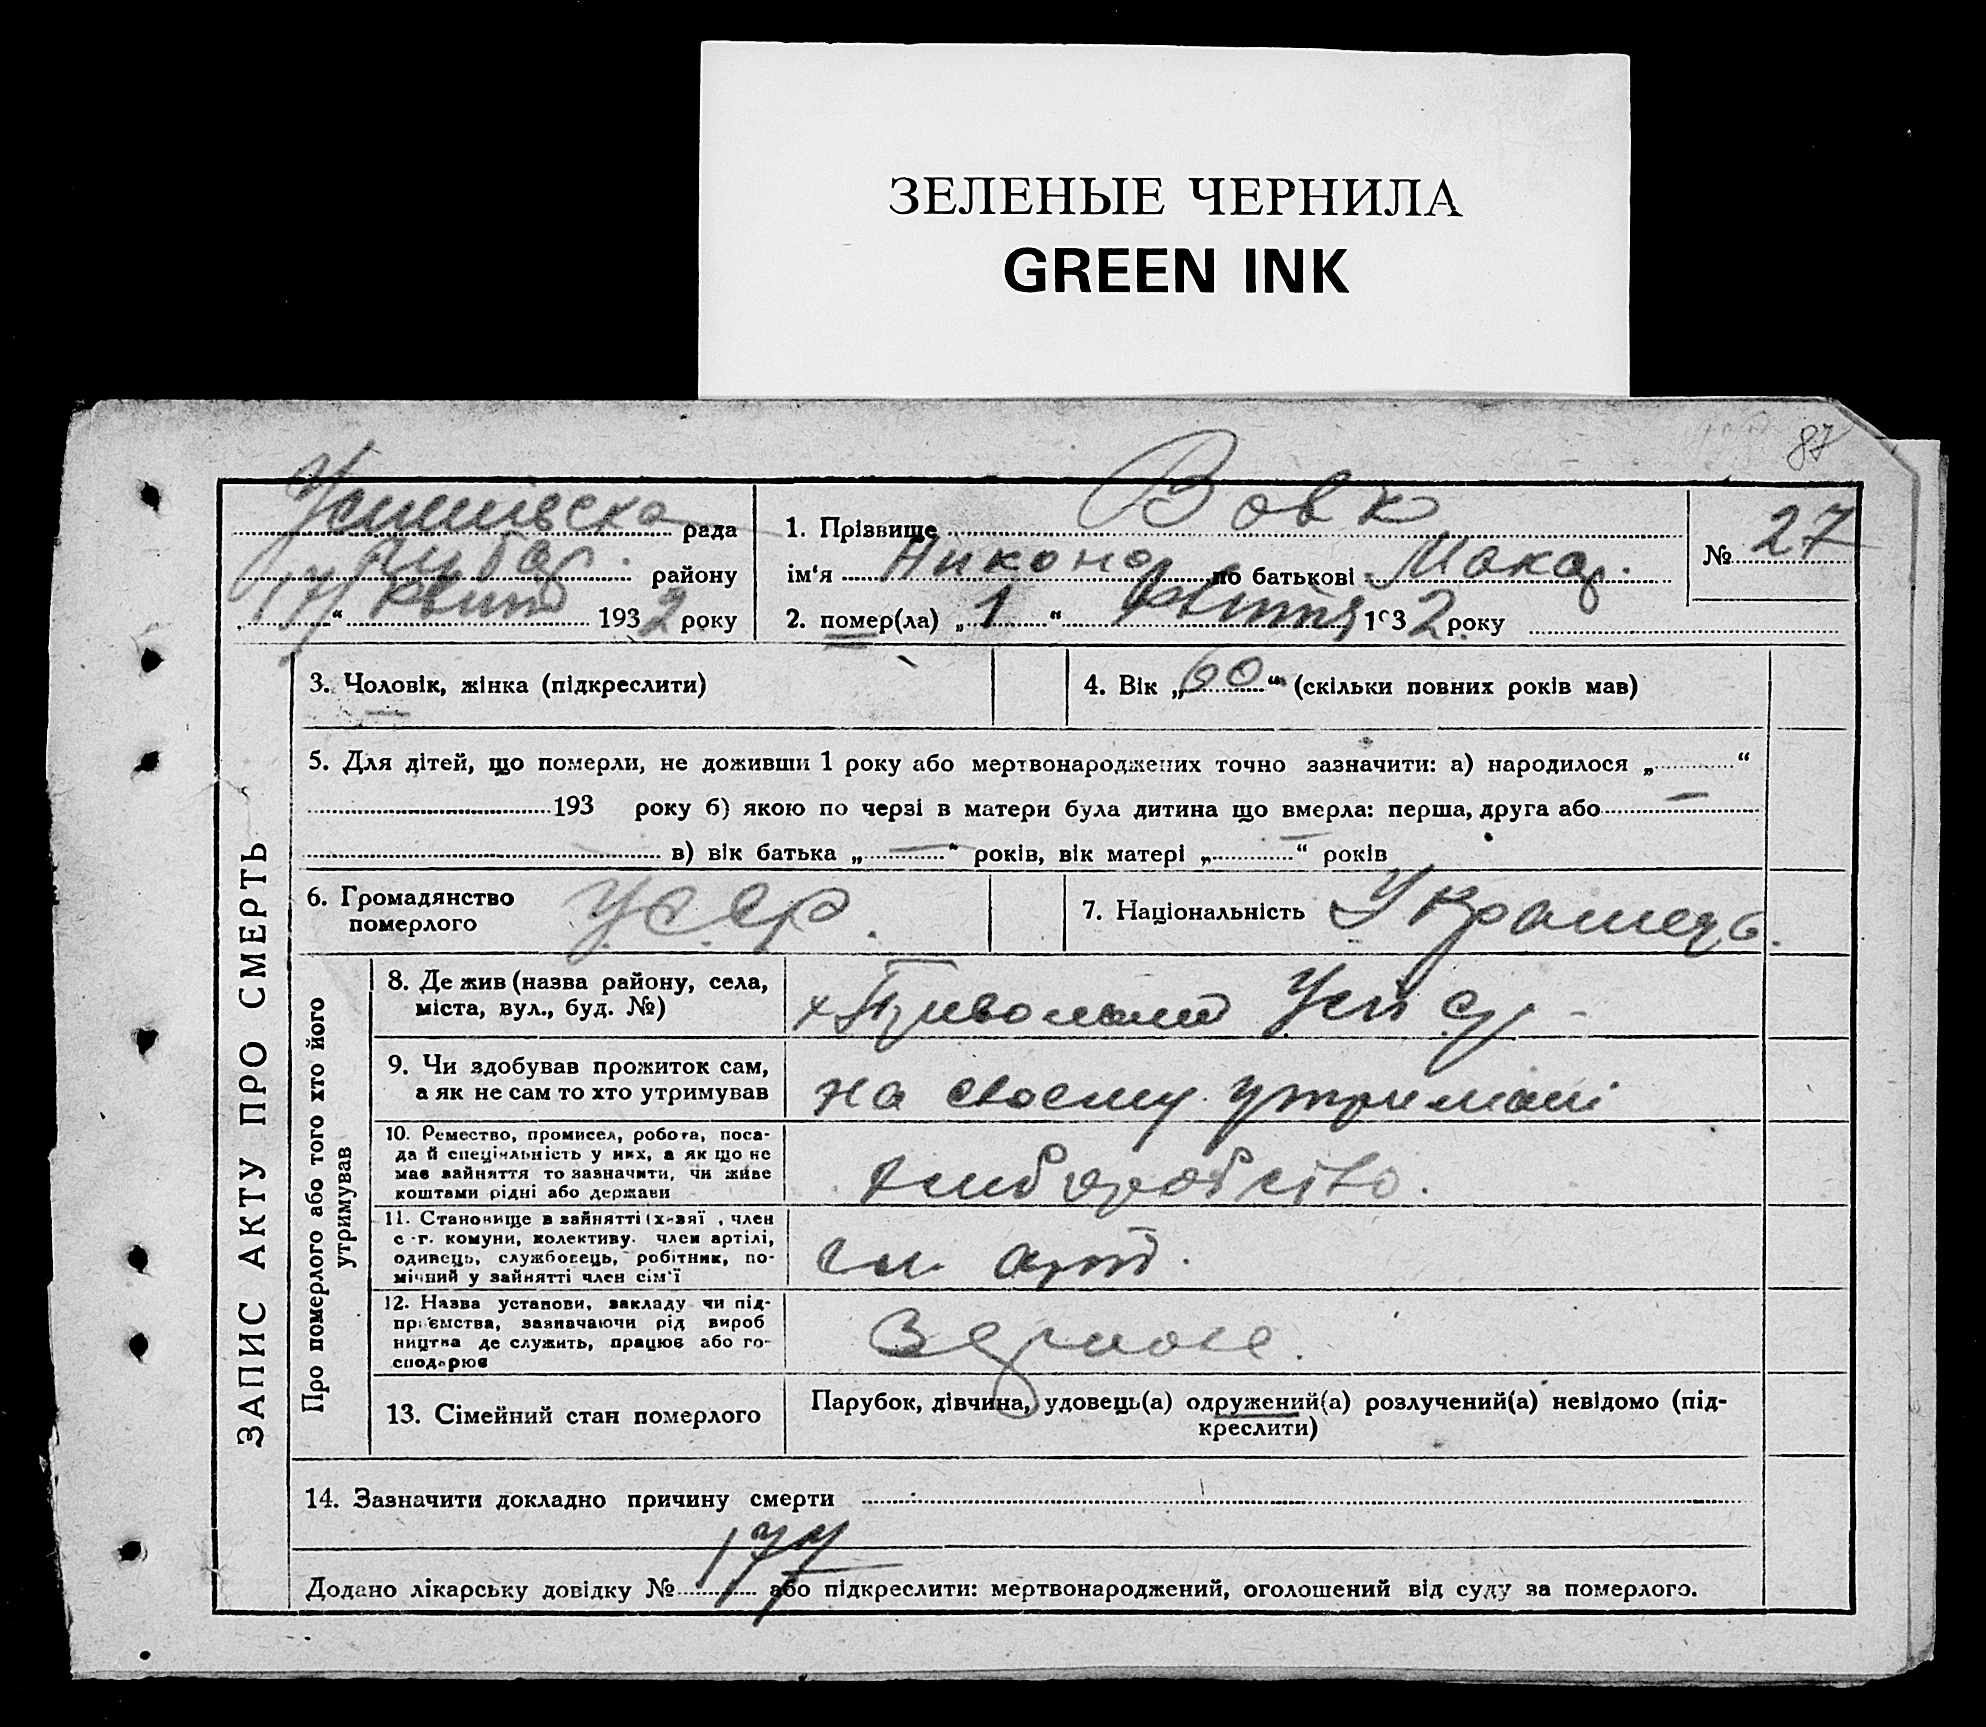 ЗЕЛЕНЫЕ ЧЕРНИЛА
GREEN INK
87
рада
району
17 квіт 1932 року
1. Прізвище Вовк
ім‘я Никоно по батькові Макар.
2. помер(ла) „1“ Квітня 1932 року
№ 27
ЗАПИС АКТУ ПРО СМЕРТЬ
3. Чоловік, жінка (підкреслити)
4. Вік „60“ (скільки повних років мав)
5. Для дітей, що померли, не доживши 1 року або мертвонароджених точно зазначити: а) народилося „ “
193 року б) якою по черзі в матери була дитина що вмерла: перша, друга або —
в) вік батька „—“ років, вік матері „—“ років
6. Громадянство
померлого
УССР.
7. Національність Украінець.
Про померлого або того хто його
утримував
8. Де жив (назва району, села,
міста, вул., буд. №)
9. Чи здобував прожиток сам,
а як не сам то хто утримував
на своєму утримані
10. Ремество, промисел, робота, поса-
да й спеціяльність у них, а як що не
має зайняття то зазначити, чи живе
коштами рідні або держави
хліборобство.
11. Становище в зайнятті (хазяї , член
с-г. комуни, колективу. член артілі,
одинець, службовець, робітник, по-
мічний у зайнятті член сім‘ї
чл. арт.
12. Назва установи, закладу чи під-
приємства, зазначаючи рід вироб
ництва де служить, працює або го-
сподарює
Зернове.
13. Сімейний стан померлого
Парубок, дівчина, удовець(а) одружений(а) розлучений(а) невідомо (під-
креслити)
14. Зазначити докладно причину смерти
Додано лікарську довідку № або підкреслити: мертвонароджений, оголошений від суду за померлого.